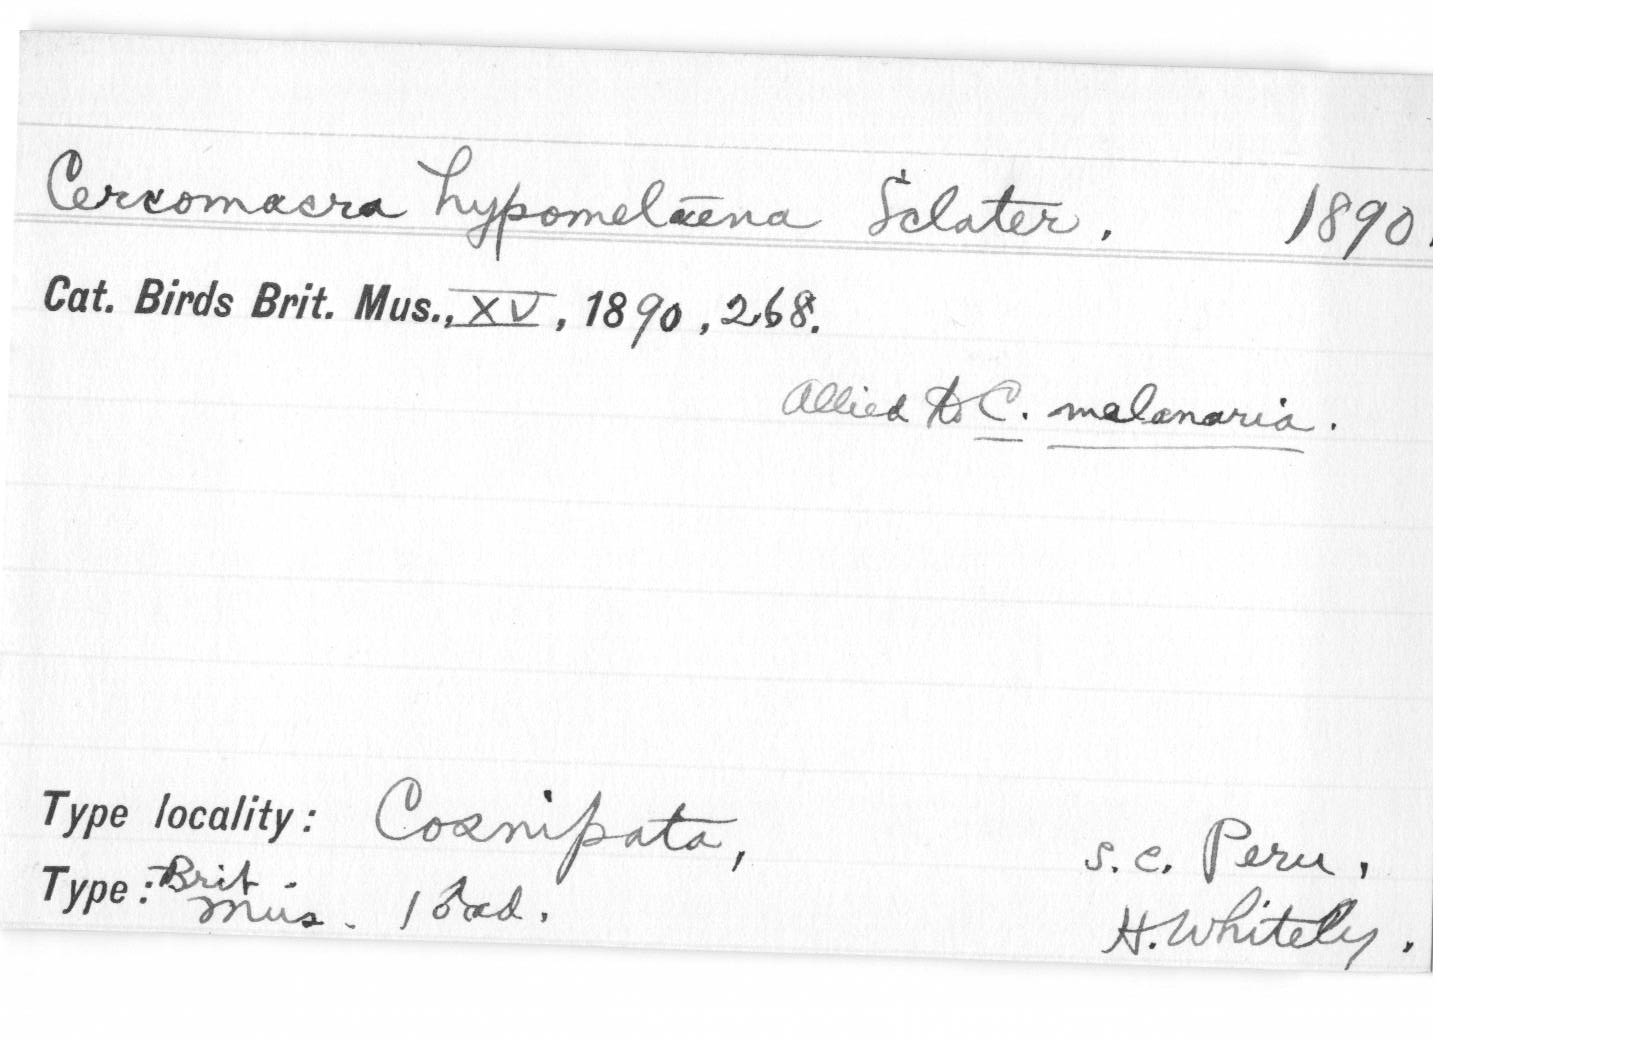 Cercomacra hypomelæna Sclater. 1890.
Cat. Birds Brit. Mus., XV, 1890, 268.
Allied to C. melanaria.
Type locality: Cosnipata, S.E. Peru,
Type: Brit. Mus. 1 ♂ ad. H. Whitely.